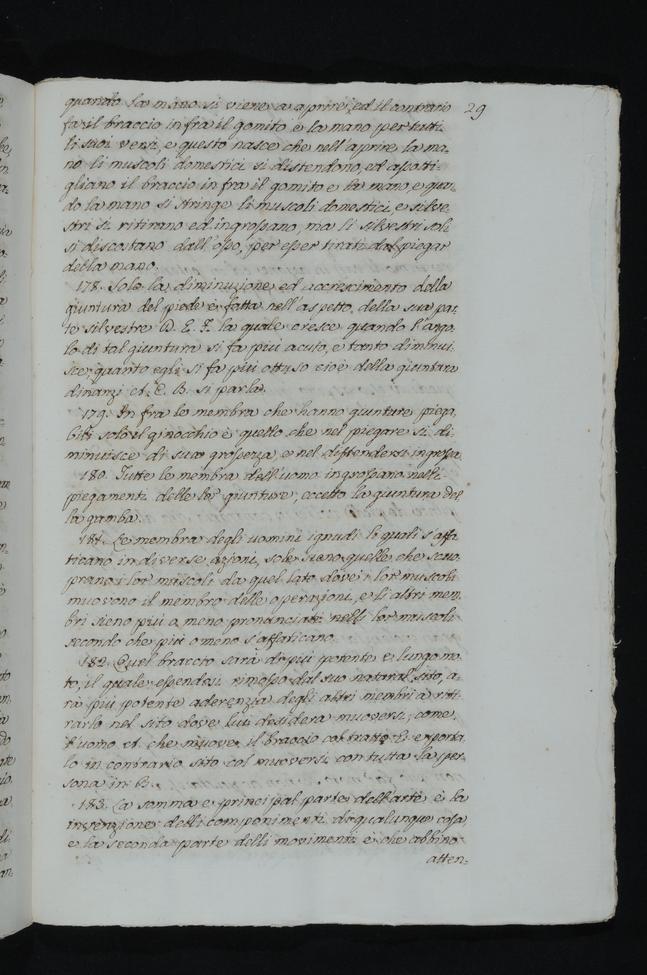 quando la mano si viene a aprire, ed il contrario 29
fa il braccio in fra il gomito, e la mano per tutti
li suoi versi, e questo nasce che nell'aprire la ma-
no li muscoli domestici si distendono, ed asotti-
gliano il braccio in fra il gomito e la mano, e quan-
do la mano si stringe li muscoli domestici, e silve-
stri si ritirano ed ingrossano, ma li silvestri soli
si discostano dall'osso, per esser tirati dal piegar
della mano.
178. Solo la diminuzione, ed accrescimento della
giuntura del piede è fatta nell'aspetto della sua par-
te silvestre D. E. F. la quale cresce quando l'ango-
lo di tal giuntura si fa più acuto, e tanto diminui-
sce, quanto egli si fa più ottuso cioè della giuntura
dinanzi A. C. B. si parla.
179. In fra le membra che hanno giunture piega-
bili solo il ginocchio è quello, che nel piegare si di-
minuisce di sua grossezza, e nel distendersi ingrossa.
180. Tutte le membra dell'uomo ingrossano nelli
piegamenti delle lor giunture, eccetto la giuntura del-
la gamba.
181. Le membra degli uomini ignudi, li quali s'affa-
ticano in diverse azioni, sole sieno quelle che scuo-
prano i lor muscoli da quel lato dove i lor muscoli
muovono il membro delle operazioni, e li altri mem-
bri sieno più, o meno pronunciati nelli lor muscoli
secondo che più o meno s'affaticano.
182. Quel braccio sarà di più potente e lungo mo-
to, il quale essendosi rimosso dal suo natural sito, a-
rà più potente aderenza degli altri membri a riti-
rarlo nel sito dove lui desidera muoversi, come
l'uomo A. che muove il braccio col tratto E. e porta-
lo in contrario sito col muoversi con tutta la per-
sona in B.
183. La somma e principal parte dell'arte è la
invenzione delli componimenti di qualunque cosa,
e la seconda parte delli movimenti è che abbino
atten-